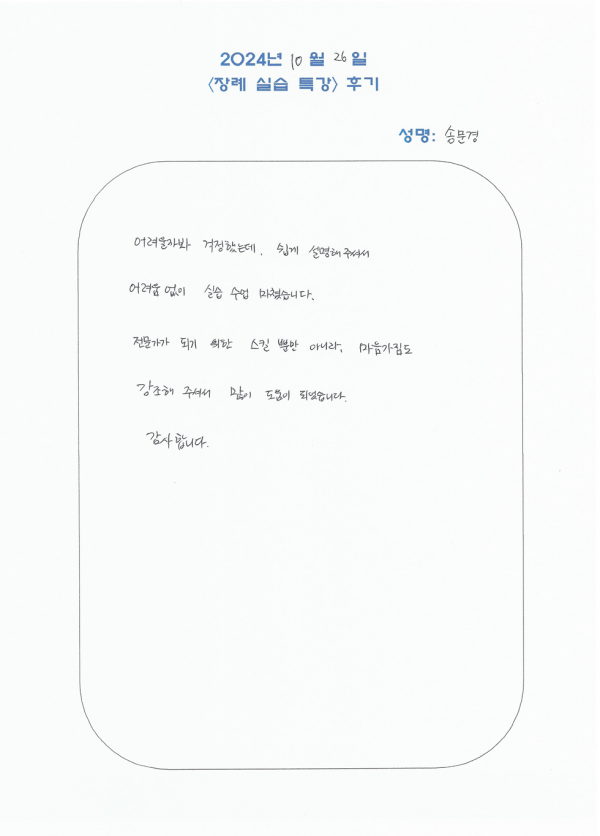 2024년 10월 26일
〈장례 실습 특강〉 후기
성명: 송문경
어려울까봐 걱정했는데, 쉽게 설명해주셔서
어려움 없이 실습 수업 마쳤습니다.
전문가가 되기 위한 스킬 뿐만 아니라, 마음가짐도
강조해 주셔서 많이 도움이 되었습니다.
감사합니다.